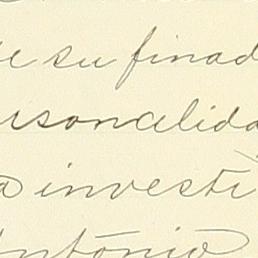 e su finad
ersonalida
a investi
Antonio